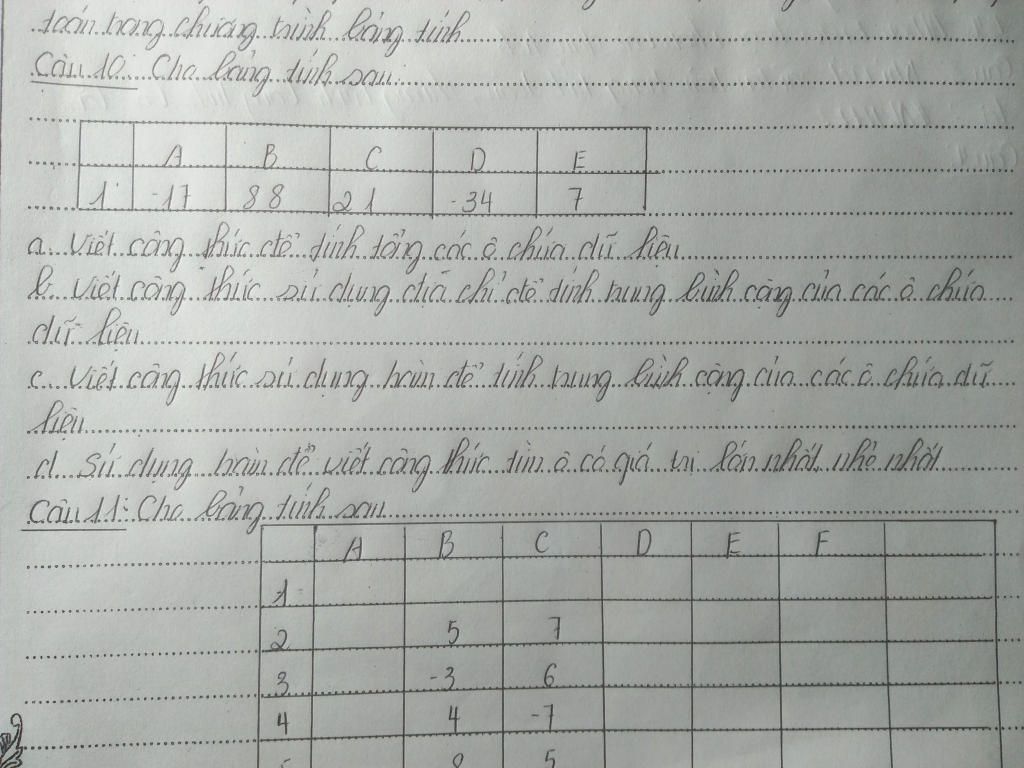 toán trong chương trình bảng tính
Câu 10: Cho bảng tính sau:
A B C D E
1 -17 88 21 -34 7
a. Viết công thức để tính tổng các ô chứa dữ liệu
b. Viết công thức sử dụng địa chỉ để tính trung bình cộng của các ô chứa
dữ liệu
c. Viết công thức sử dụng hàm để tính trung bình cộng của các ô chứa dữ
liệu
d. Sử dụng hàm để viết công thức tìm ô có giá trị lớn nhất, nhỏ nhất
Câu 11: Cho bảng tính sau
A B C D E F
1
2 5 7
3 -3 6
4 4 -7
5